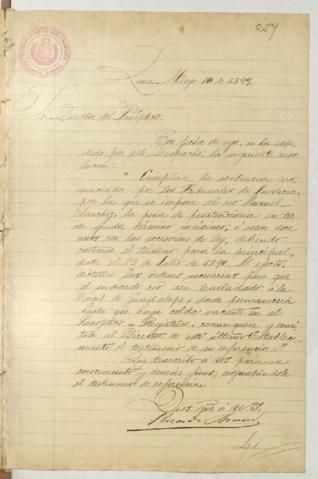 257
Lima, Mayo 10 de 1892
Sr. Director del Panóptico.
Con fecha de ayer, se ha expe-
dido por este Despacho, la siguiente reso-
lución:
"Cúmplase la sentencia pro-
nunciada por los Tribunales de Justicia,
por la que se impone al reo Manuel
Sanchez, la pena de penitenciaría en ter-
cer grado, término máximo, ó sean doce
años con las accesorias de ley, debiendo
contarse el término para la principal,
desde el 23 de Julio de 1890. Al efecto
díctense las órdenes necesarias para que
el indicado reo sea trasladado á la
Cárcel de Guadalupe, donde permanecerá
hasta que haya celda vacante en el
Panóptico. Regístrese, comuníquese y remí-
tase al Director de este último Estableci-
miento el testimonio de su referencia."
La trascribo á US. para su
conocimiento y demás fines, adjuntándole
el testimonio de referencia.
Dios gue. á US.
Ricardo